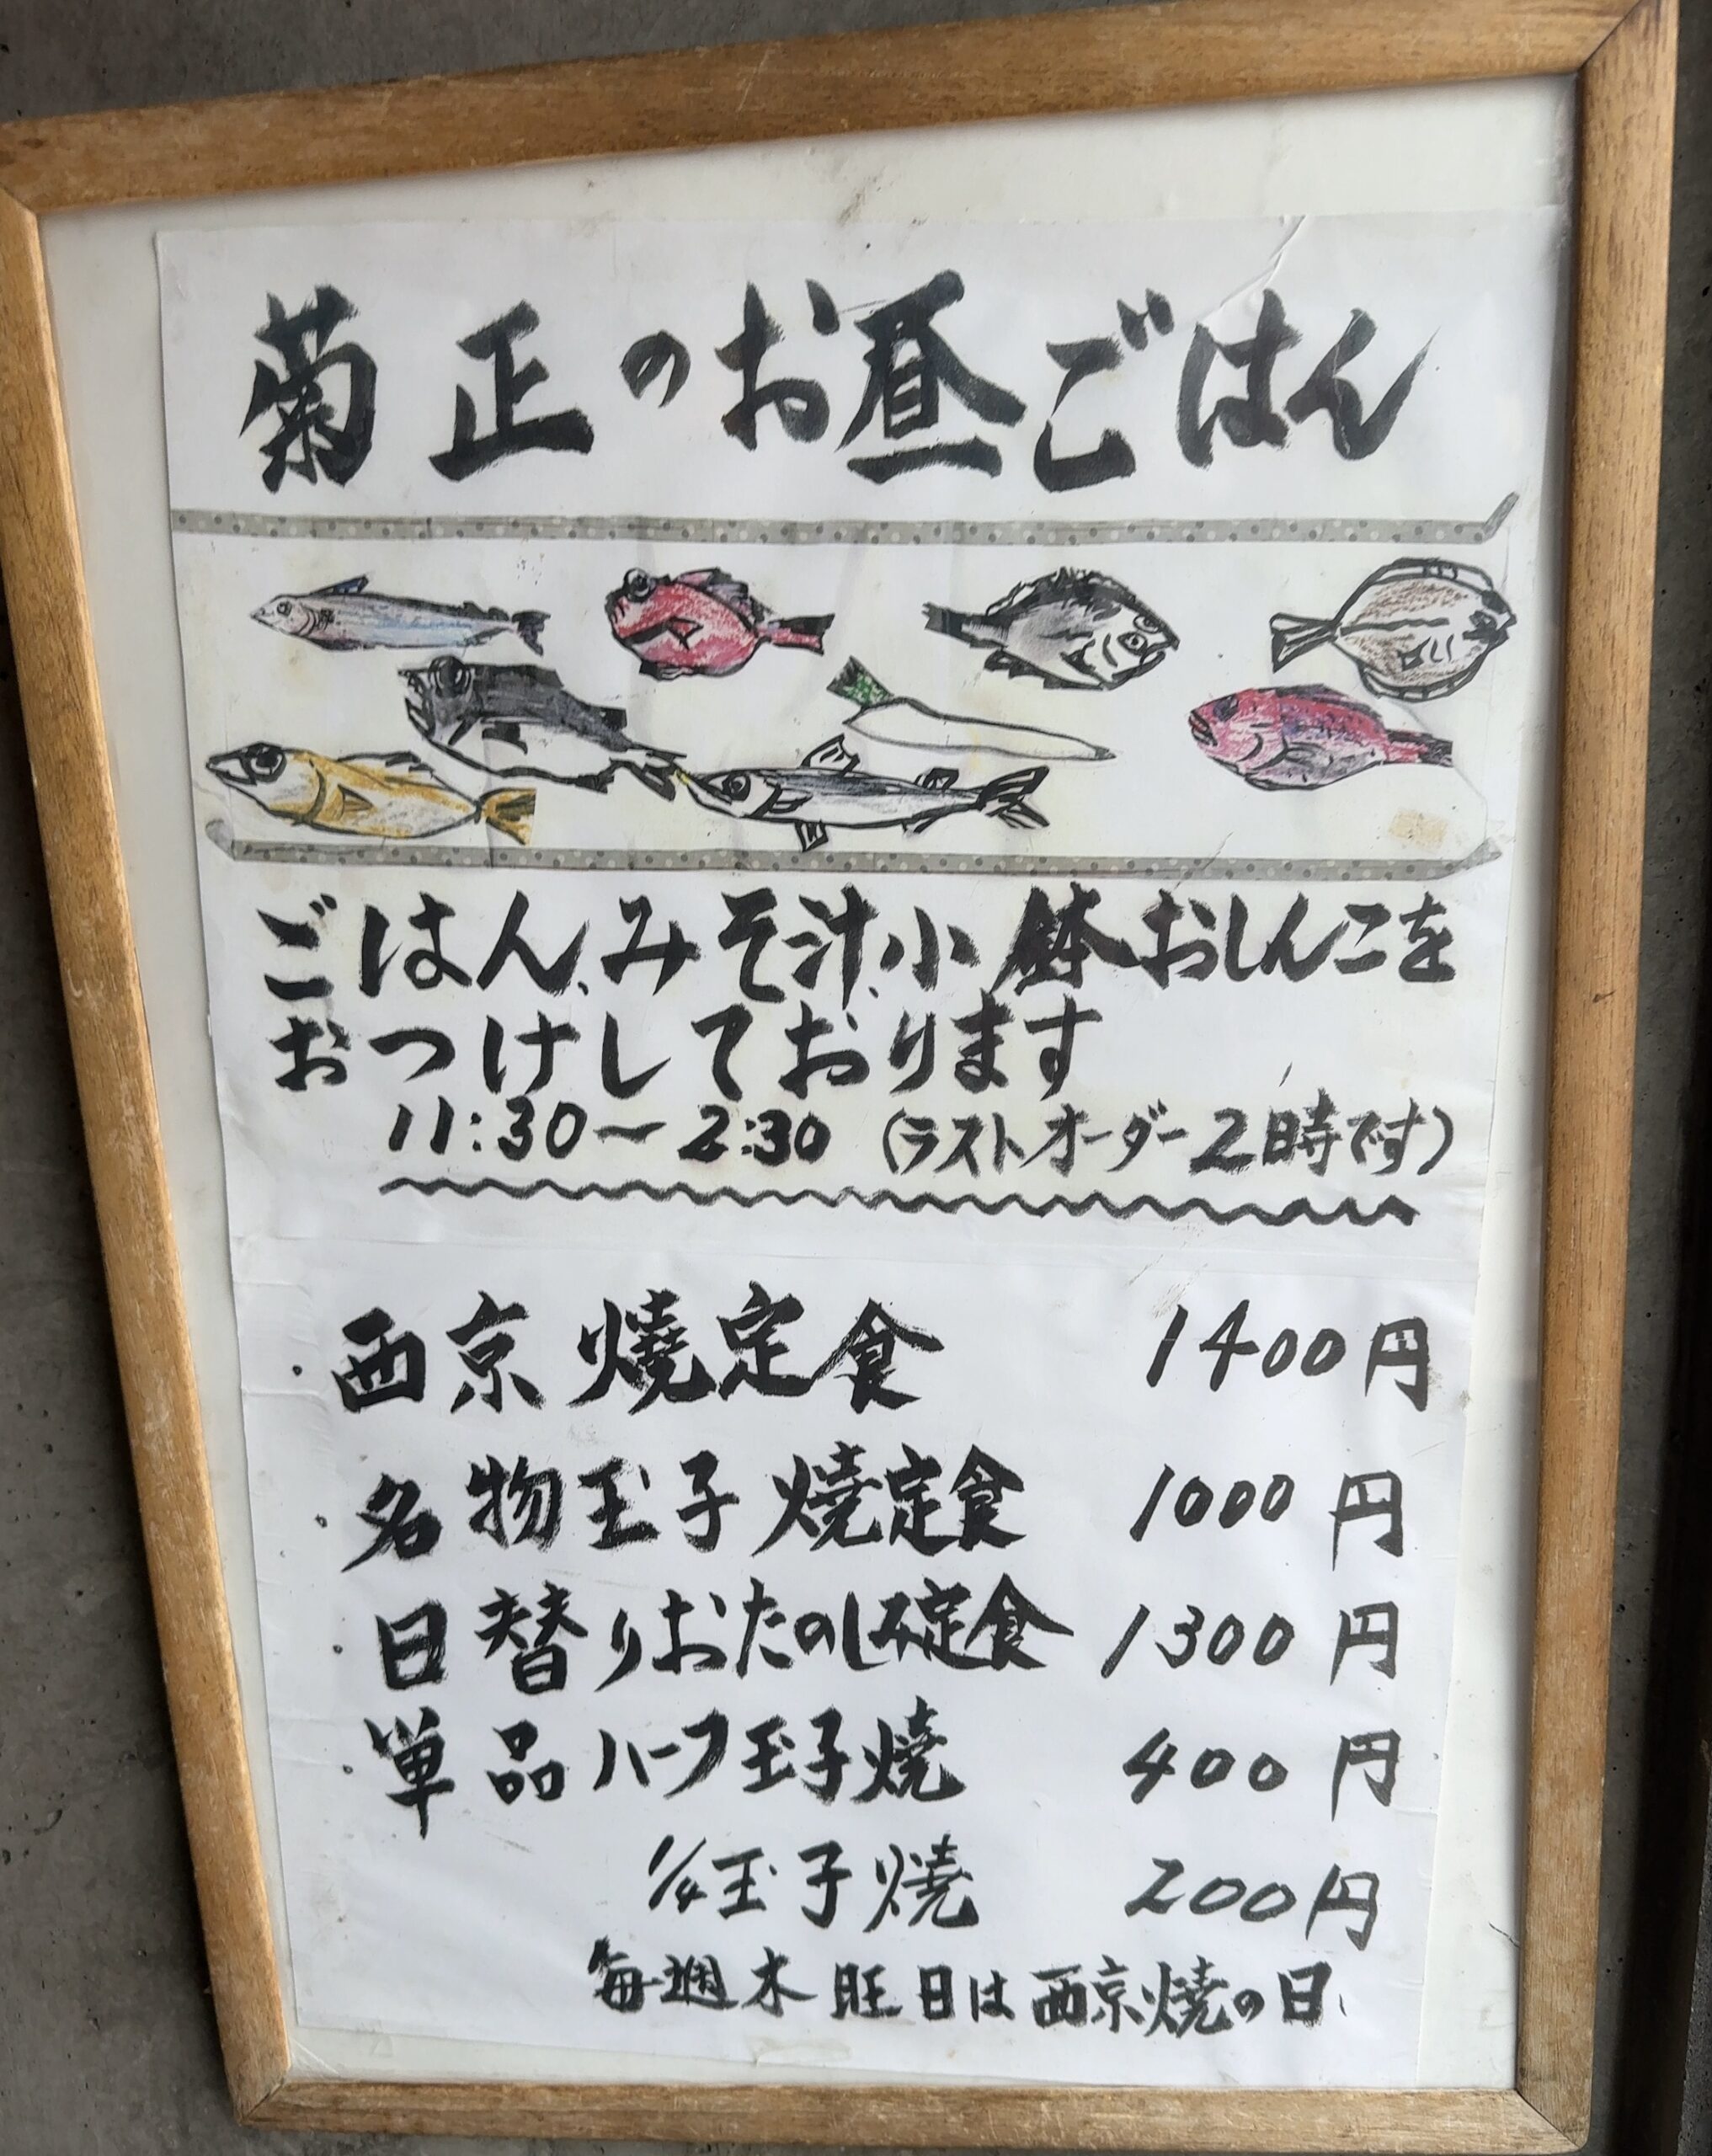 菊正のお昼ごはん
ごはん、みそ汁、小鉢おしんこを
おつけしております
11:30〜2:30 (ラストオーダー2時です)
・西京焼定食 1400円
・名物玉子焼定食 1000円
・日替りおたのしみ定食 1300円
・単品ハーフ玉子焼 400円
1/4玉子焼 200円
毎週木旺日は西京焼の日